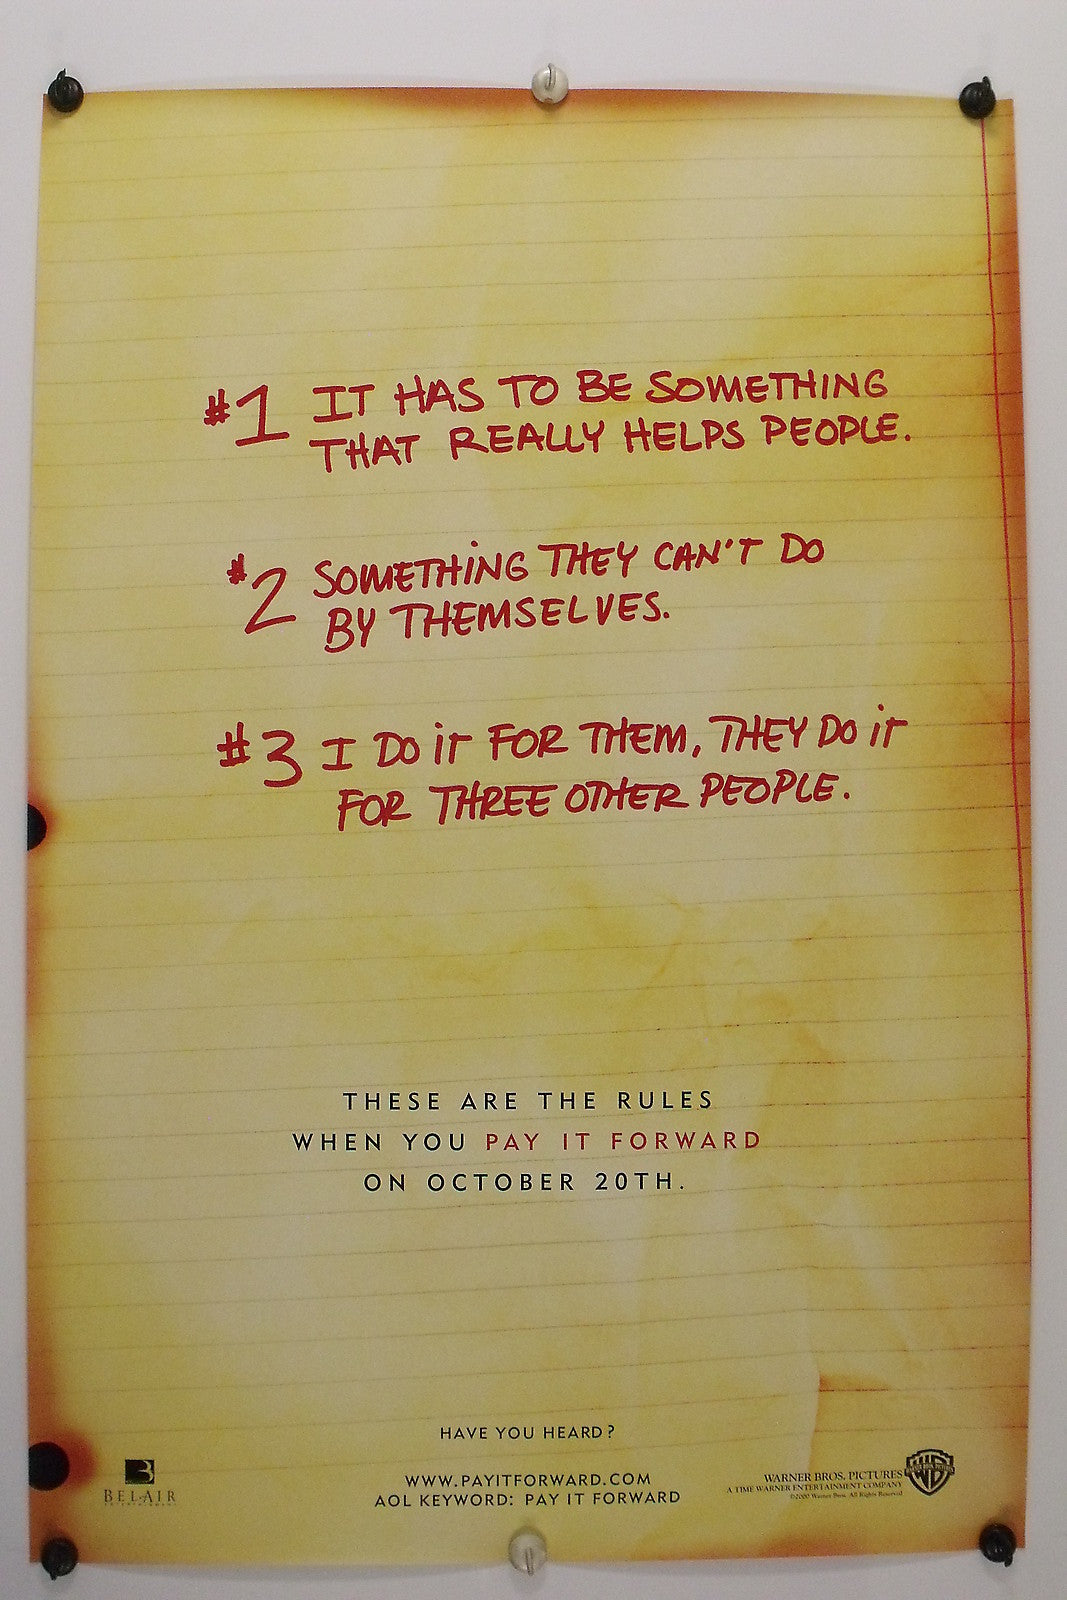 #1 IT HAS TO BE SOMETHING
THAT REALLY HELPS PEOPLE.
#2 SOMETHING THEY CAN'T DO
BY THEMSELVES.
#3 I DO iT FOR THEM, THEY DO iT
FOR THREE OTHER PEOPLE.
THESE ARE THE RULES
WHEN YOU PAY IT FORWARD
ON OCTOBER 20TH.
HAVE YOU HEARD?
WWW.PAYITFORWARD.COM
AOL KEYWORD: PAY IT FORWARD
BEL-AIR
ENTERTAINMENT
WARNER BROS. PICTURES
A TIME WARNER ENTERTAINMENT COMPANY
©2000 Warner Bros. All Rights Reserved